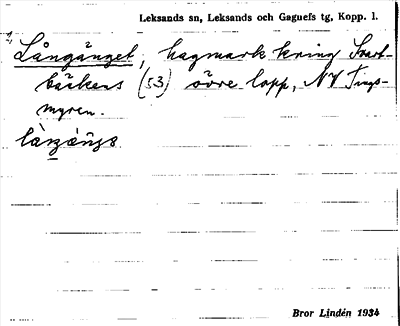 Leksands sn, Leksands och Gagnefs tg, Kopp. l.
Långänget, hagmark kring Svart-
bäckens (53) övre lopp, NV Tings-
myren.
Bror Lindén 1934